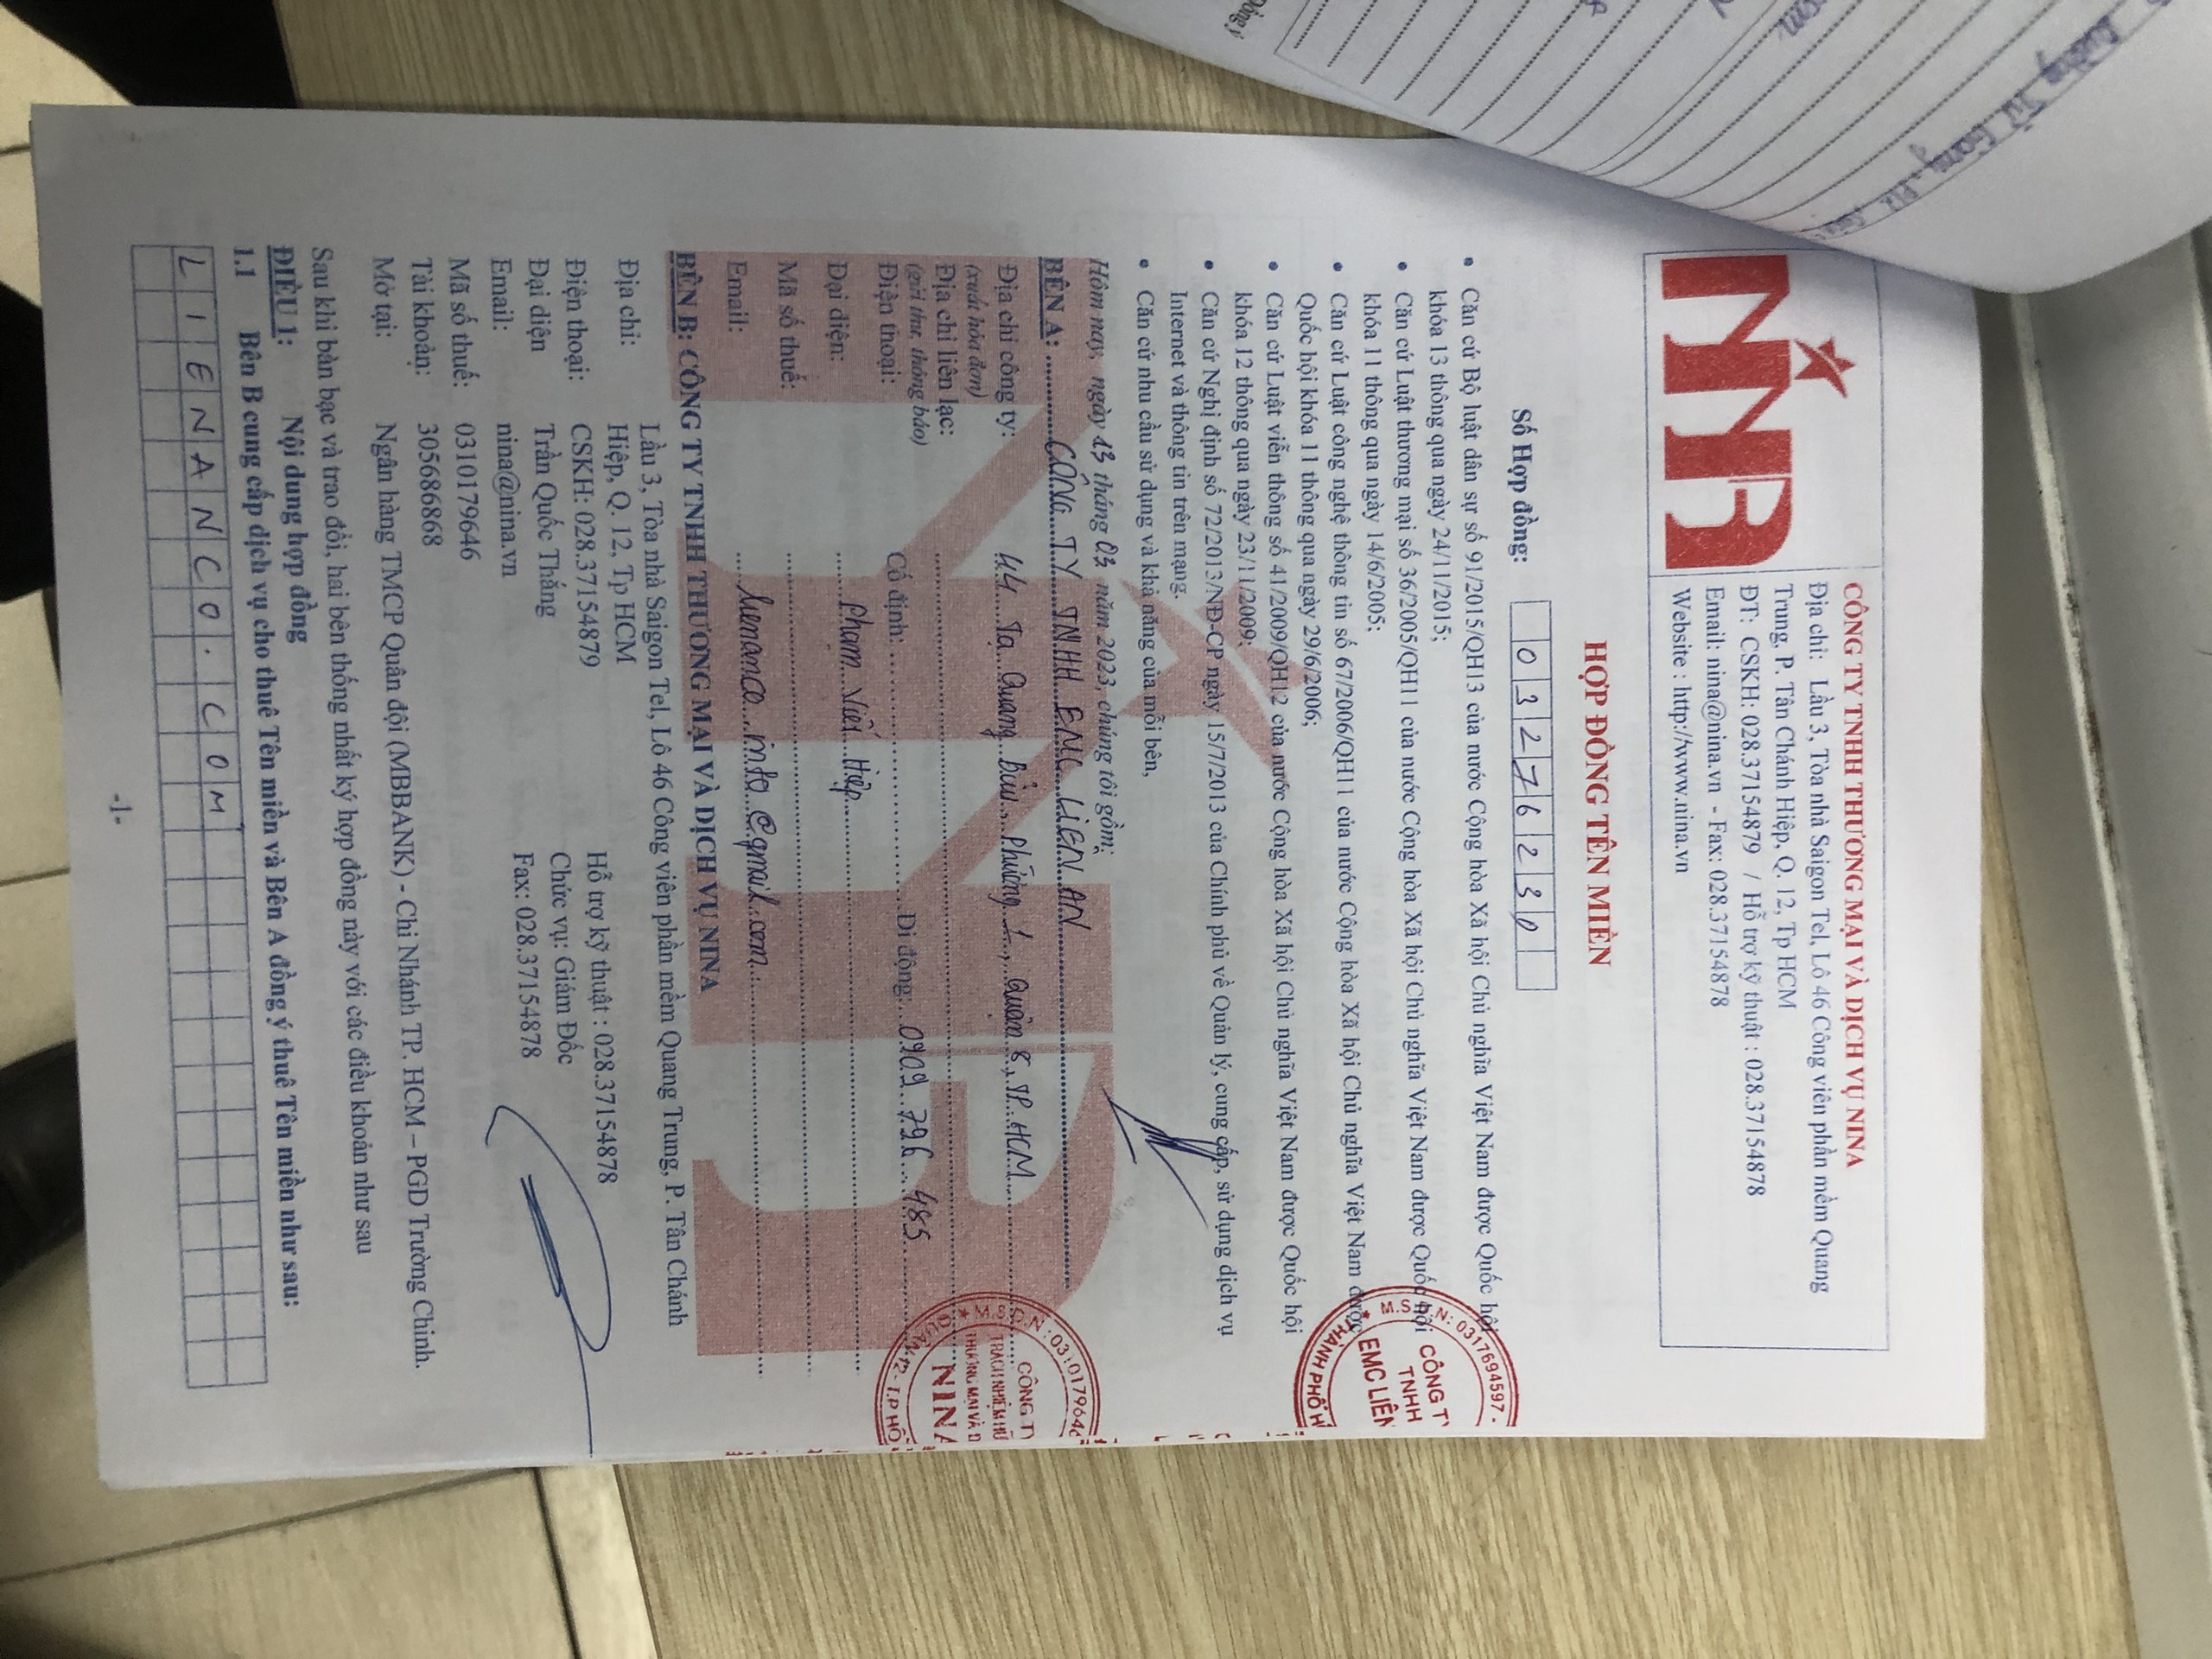 NINA
CÔNG TY TNHH THƯƠNG MẠI VÀ DỊCH VỤ NINA
Địa chỉ: Lầu 3, Tòa nhà Saigon Tel, Lô 46 Công viên phần mềm Quang
Trung, P. Tân Chánh Hiệp, Q. 12, Tp HCM
ĐT: CSKH: 028.37154879 / Hỗ trợ kỹ thuật : 028.37154878
Email: nina@nina.vn - Fax: 028.37154878
Website : http://www.nina.vn
HỢP ĐỒNG TÊN MIỀN
Số Hợp đồng: 03276230
• Căn cứ Bộ luật dân sự số 91/2015/QH13 của nước Cộng hòa Xã hội Chủ nghĩa Việt Nam được Quốc hội
khóa 13 thông qua ngày 24/11/2015;
• Căn cứ Luật thương mại số 36/2005/QH11 của nước Cộng hòa Xã hội Chủ nghĩa Việt Nam được Quốc hội
khóa 11 thông qua ngày 14/6/2005;
• Căn cứ Luật công nghệ thông tin số 67/2006/QH11 của nước Cộng hòa Xã hội Chủ nghĩa Việt Nam được
Quốc hội khóa 11 thông qua ngày 29/6/2006;
• Căn cứ Luật viễn thông số 41/2009/QH12 của nước Cộng hòa Xã hội Chủ nghĩa Việt Nam được Quốc hội
khóa 12 thông qua ngày 23/11/2009;
• Căn cứ Nghị định số 72/2013/NĐ-CP ngày 15/7/2013 của Chính phủ về Quản lý, cung cấp, sử dụng dịch vụ
Internet và thông tin trên mạng.
• Căn cứ nhu cầu sử dụng và khả năng của mỗi bên,
Hôm nay, ngày 13 tháng 03 năm 2023, chúng tôi gồm:
BÊN A: CÔNG TY TNHH EMC LIEN AN
Địa chỉ công ty: 44 Tạ Quang Bửu, Phường 1, Quận 8, TP. HCM
(xuất hóa đơn)
Địa chỉ liên lạc:
(gửi thư, thông báo)
Điện thoại: Cố định: Di động: 0909 796 485
Đại diện: Phạm Viết Hiệp
Mã số thuế:
Email: lienanco.info@gmail.com
BÊN B: CÔNG TY TNHH THƯƠNG MẠI VÀ DỊCH VỤ NINA
Địa chỉ: Lầu 3, Tòa nhà Saigon Tel, Lô 46 Công viên phần mềm Quang Trung, P. Tân Chánh
Hiệp, Q. 12, Tp HCM
Điện thoại: CSKH: 028.37154879 Hỗ trợ kỹ thuật : 028.37154878
Đại diện Trần Quốc Thắng Chức vụ: Giám Đốc
Email: nina@nina.vn Fax: 028.37154878
Mã số thuế: 0310179646
Tài khoản: 305686868
Mở tại: Ngân hàng TMCP Quân đội (MBBANK) - Chi Nhánh TP. HCM – PGD Trường Chinh.
Sau khi bàn bạc và trao đổi, hai bên thống nhất ký hợp đồng này với các điều khoản như sau
ĐIỀU 1: Nội dung hợp đồng
1.1 Bên B cung cấp dịch vụ cho thuê Tên miền và Bên A đồng ý thuê Tên miền như sau:
LIENANCO.COM
-1-
M.S.D.N: 0317694597
CÔNG TY
TNHH
EMC LIÊN
THÀNH PHỐ H
M.S.D.N: 031017964
CÔNG TY
TRÁCH NHIỆM HỮ
THƯƠNG MẠI VÀ D
NINA
QUẬN 12 - T.P HỒ